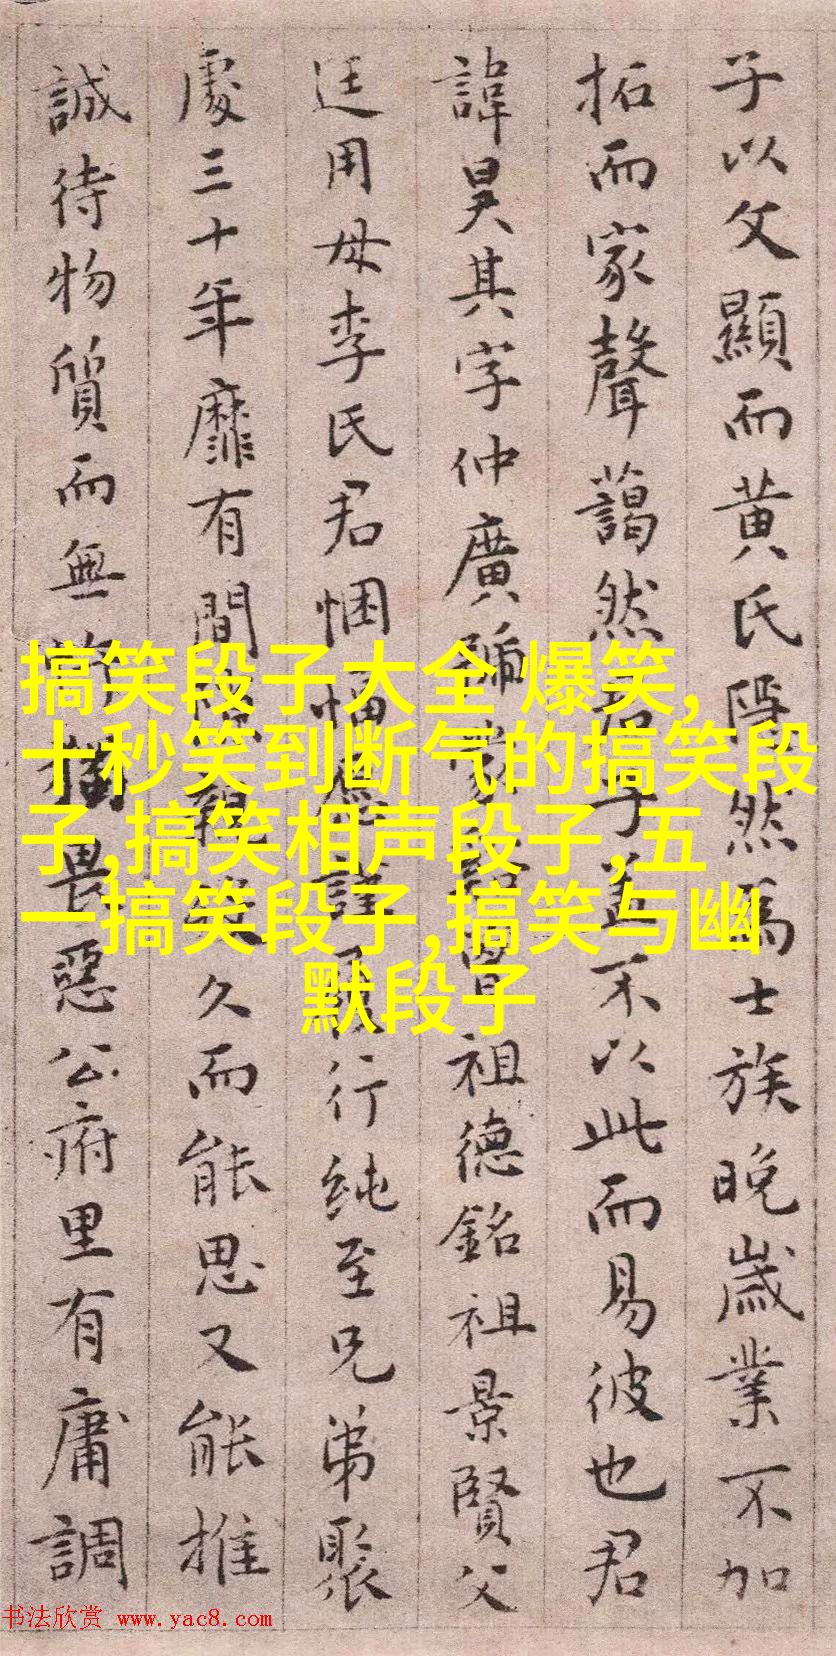 子以父顯而黄氏尉然為士族晚歲業不加
拓而家聲藹然君子盖不以此而易彼也君
諱昊其字仲廣 祖德銘祖景賢父
廷用母李氏君悃愊 行純至兄弟聚
處三十年靡有間 久而能思又能推
誠待物質而無 畏惡公府里有庸調
搞笑段子大全 爆笑,
十秒笑到断气的搞笑段
子,搞笑相声段子,五
一搞笑段子,搞笑与幽
默段子
书法欣赏 www.yac8.com